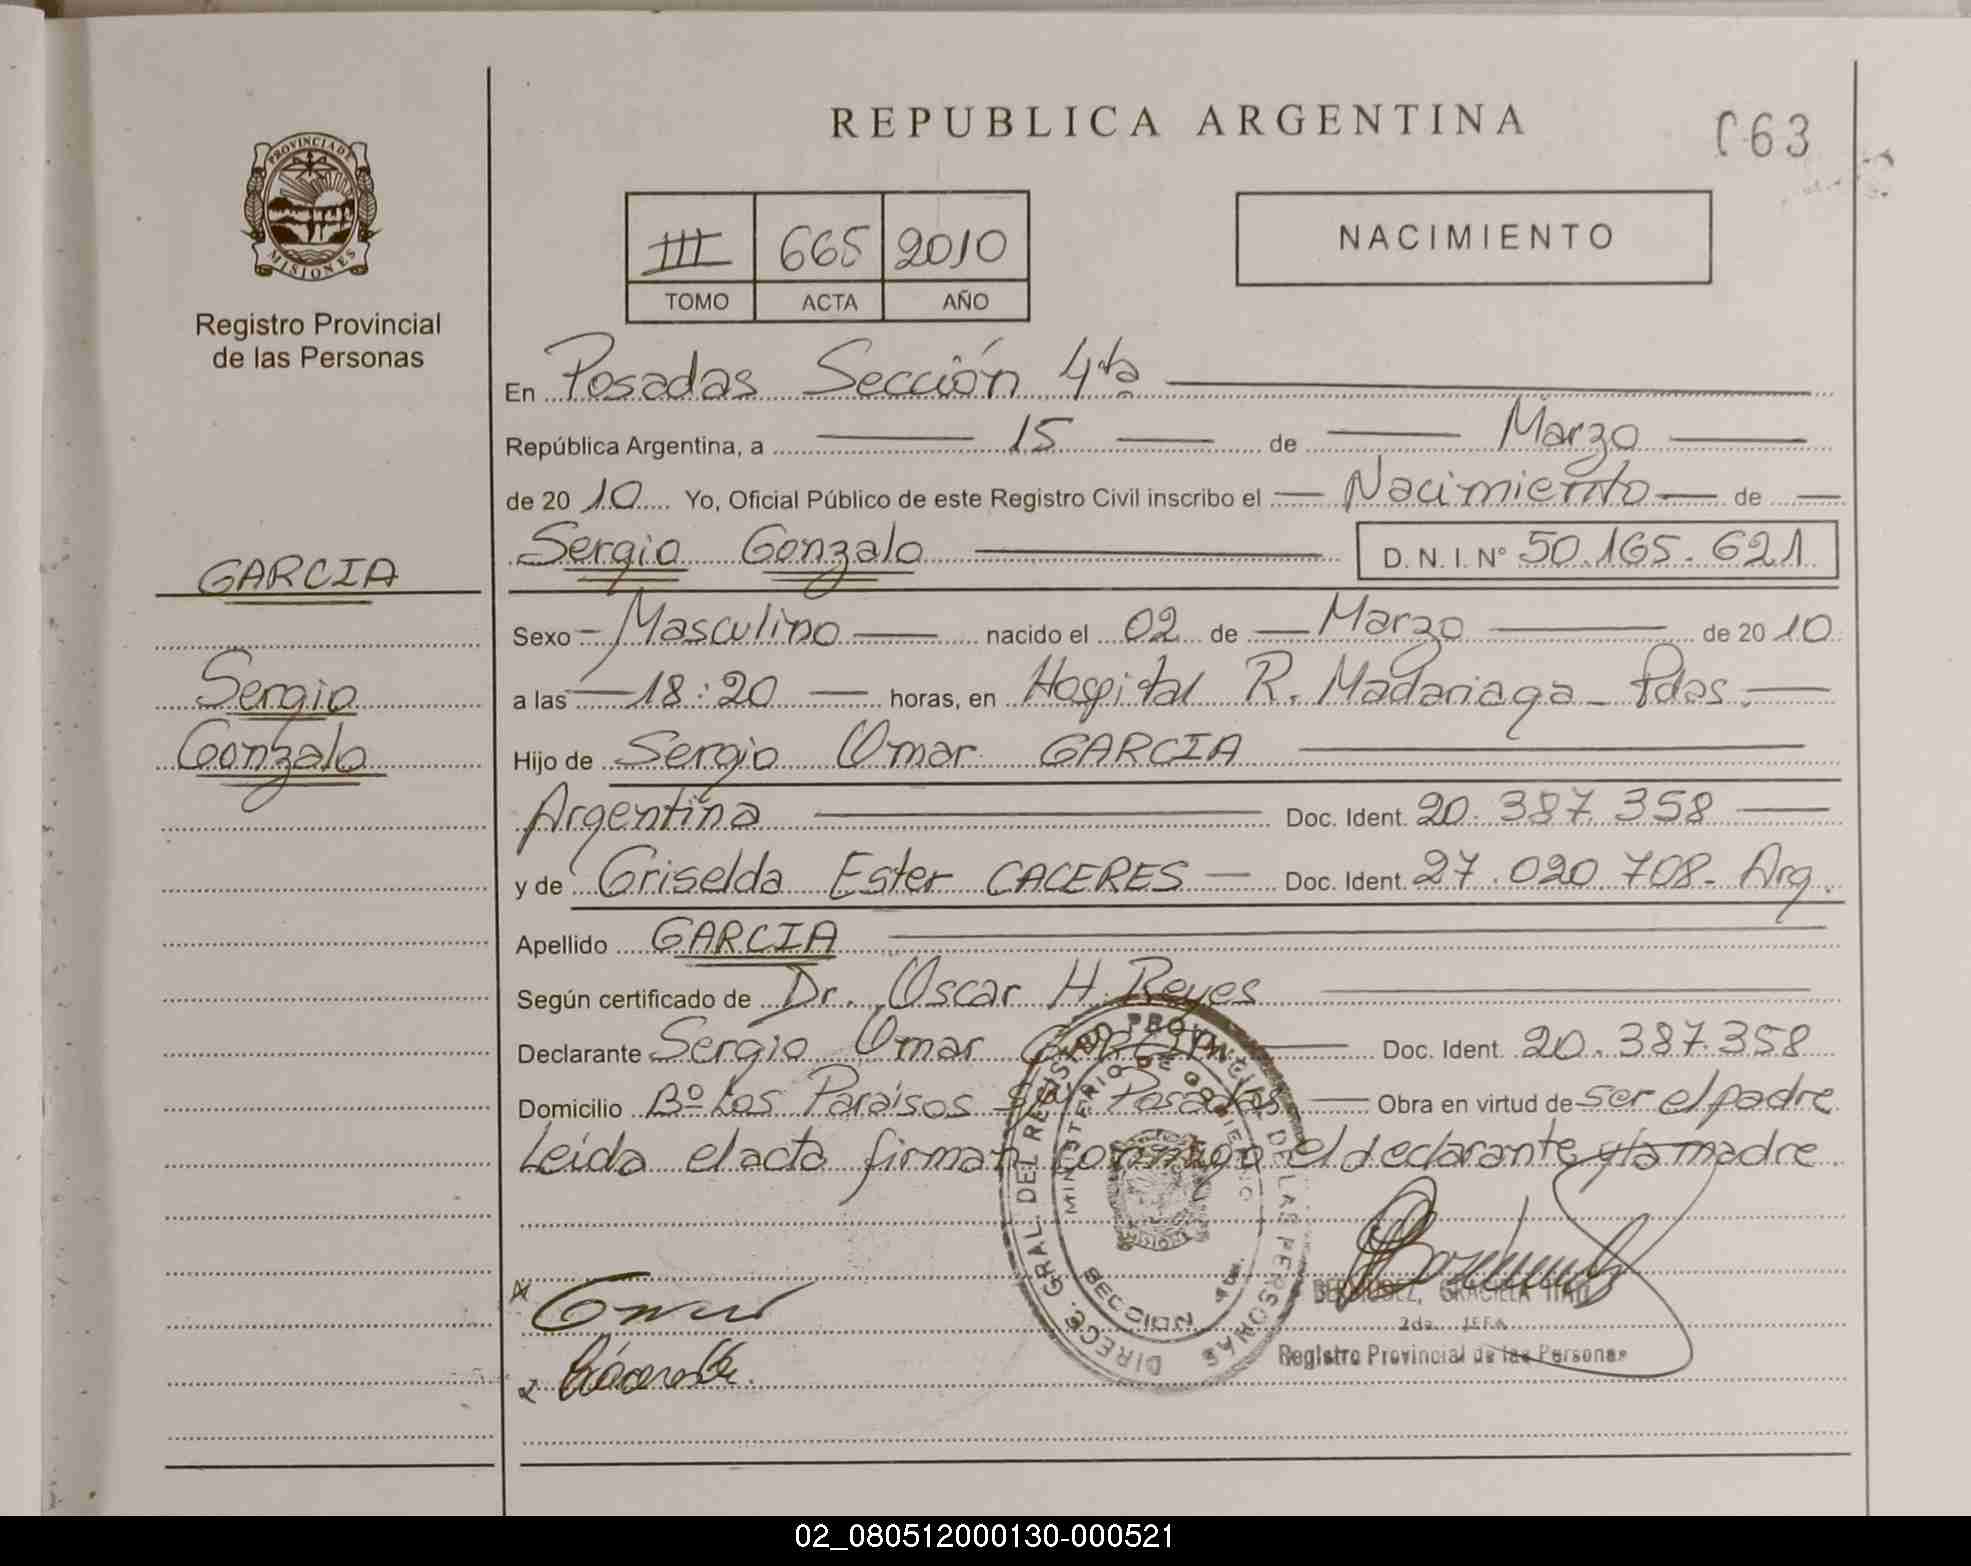 REPUBLICA ARGENTINA
063
PROVINCIA DE
MISIONES
Registro Provincial
de las Personas
III 665 2010
TOMO ACTA AÑO
NACIMIENTO
En Posadas Sección 4ta
República Argentina, a 15 de Marzo
de 2010 Yo, Oficial Público de este Registro Civil inscribo el Nacimiento de
Sergio Gonzalo D. N. I. N° 50.165.621
GARCIA
Sergio
Gonzalo
Sexo Masculino nacido el 02 de Marzo de 2010
a las 18:20 horas, en Hospital R. Madariaga - Pdas.
Hijo de Sergio Omar GARCIA
Argentina Doc. Ident. 20.387.358
y de Griselda Ester CACERES Doc. Ident. 27.020.708- Arg.
Apellido GARCIA
Según certificado de Dr. Oscar H. Reyes
Declarante Sergio Omar GARCIA Doc. Ident. 20.387.358
Domicilio Bº Los Paraísos Posadas Obra en virtud de ser el padre
Leída el acta firman conmigo el declarante y la madre
DIRECC. GRAL. DEL REGISTRO PROVINCIAL DE LAS PERSONAS
MINISTERIO DE GOBIERNO
MISIONES
SECCION 4ta.
BERMUDEZ, GRACIELA
2da. JEFA
Registro Provincial de las Personas
02_080512000130-000521